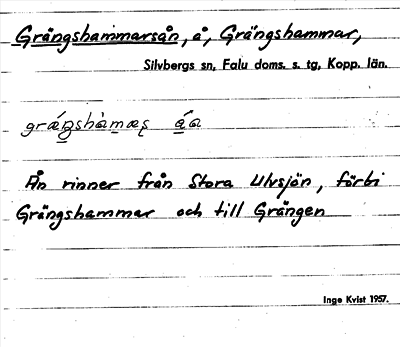 Grängshammarsån, å, Grängshammar,
Silvbergs sn, Falu doms. s. tg, Kopp. län.
gräŋshàmaʂ å̀a
Ån rinner från Stora Ulvsjön, förbi
Grängshammar och till Grängen
Inge Kvist 1957.